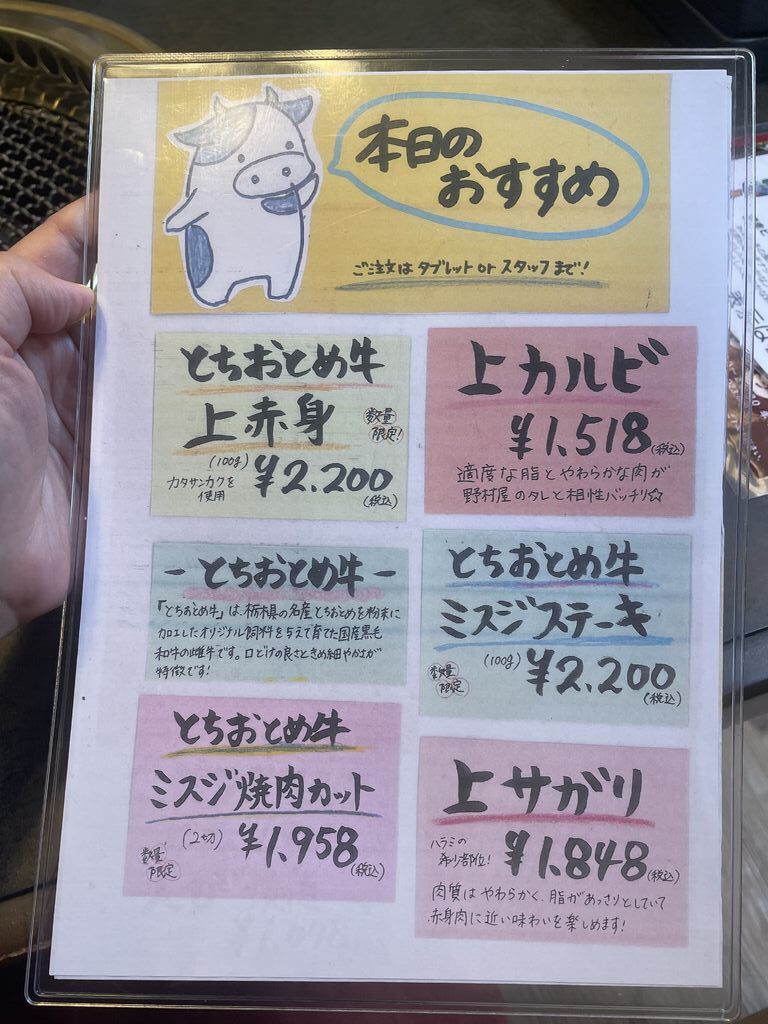 本日の
おすすめ
ご注文は タブレット or スタッフ まで!
とちおとめ牛
上赤身
数量
限定!
(100g)
¥2.200
(税込)
カタサンカクを
使用
上カルビ
¥1,518
(税込)
適度な脂とやわらかな肉が
野村屋のタレと相性バッチリ☆
-とちおとめ牛-
「とちおとめ牛」は、栃木県の名産とちおとめを粉末に
加工したオリジナル飼料を与えて育てた国産黒毛
和牛の雌牛です。口どけの良さときめ細やかさが
特徴です!
とちおとめ牛
ミスジステーキ
数量
限定
(100g)
¥2.200
(税込)
とちおとめ牛
ミスジ焼肉カット
数量
限定
(2切)
¥1.958
(税込)
上サガリ
ハラミの
希少部位!
¥1.848
(税込)
肉質はやわらかく、脂があっさりとしていて
赤身肉に近い味わいを楽しめます!